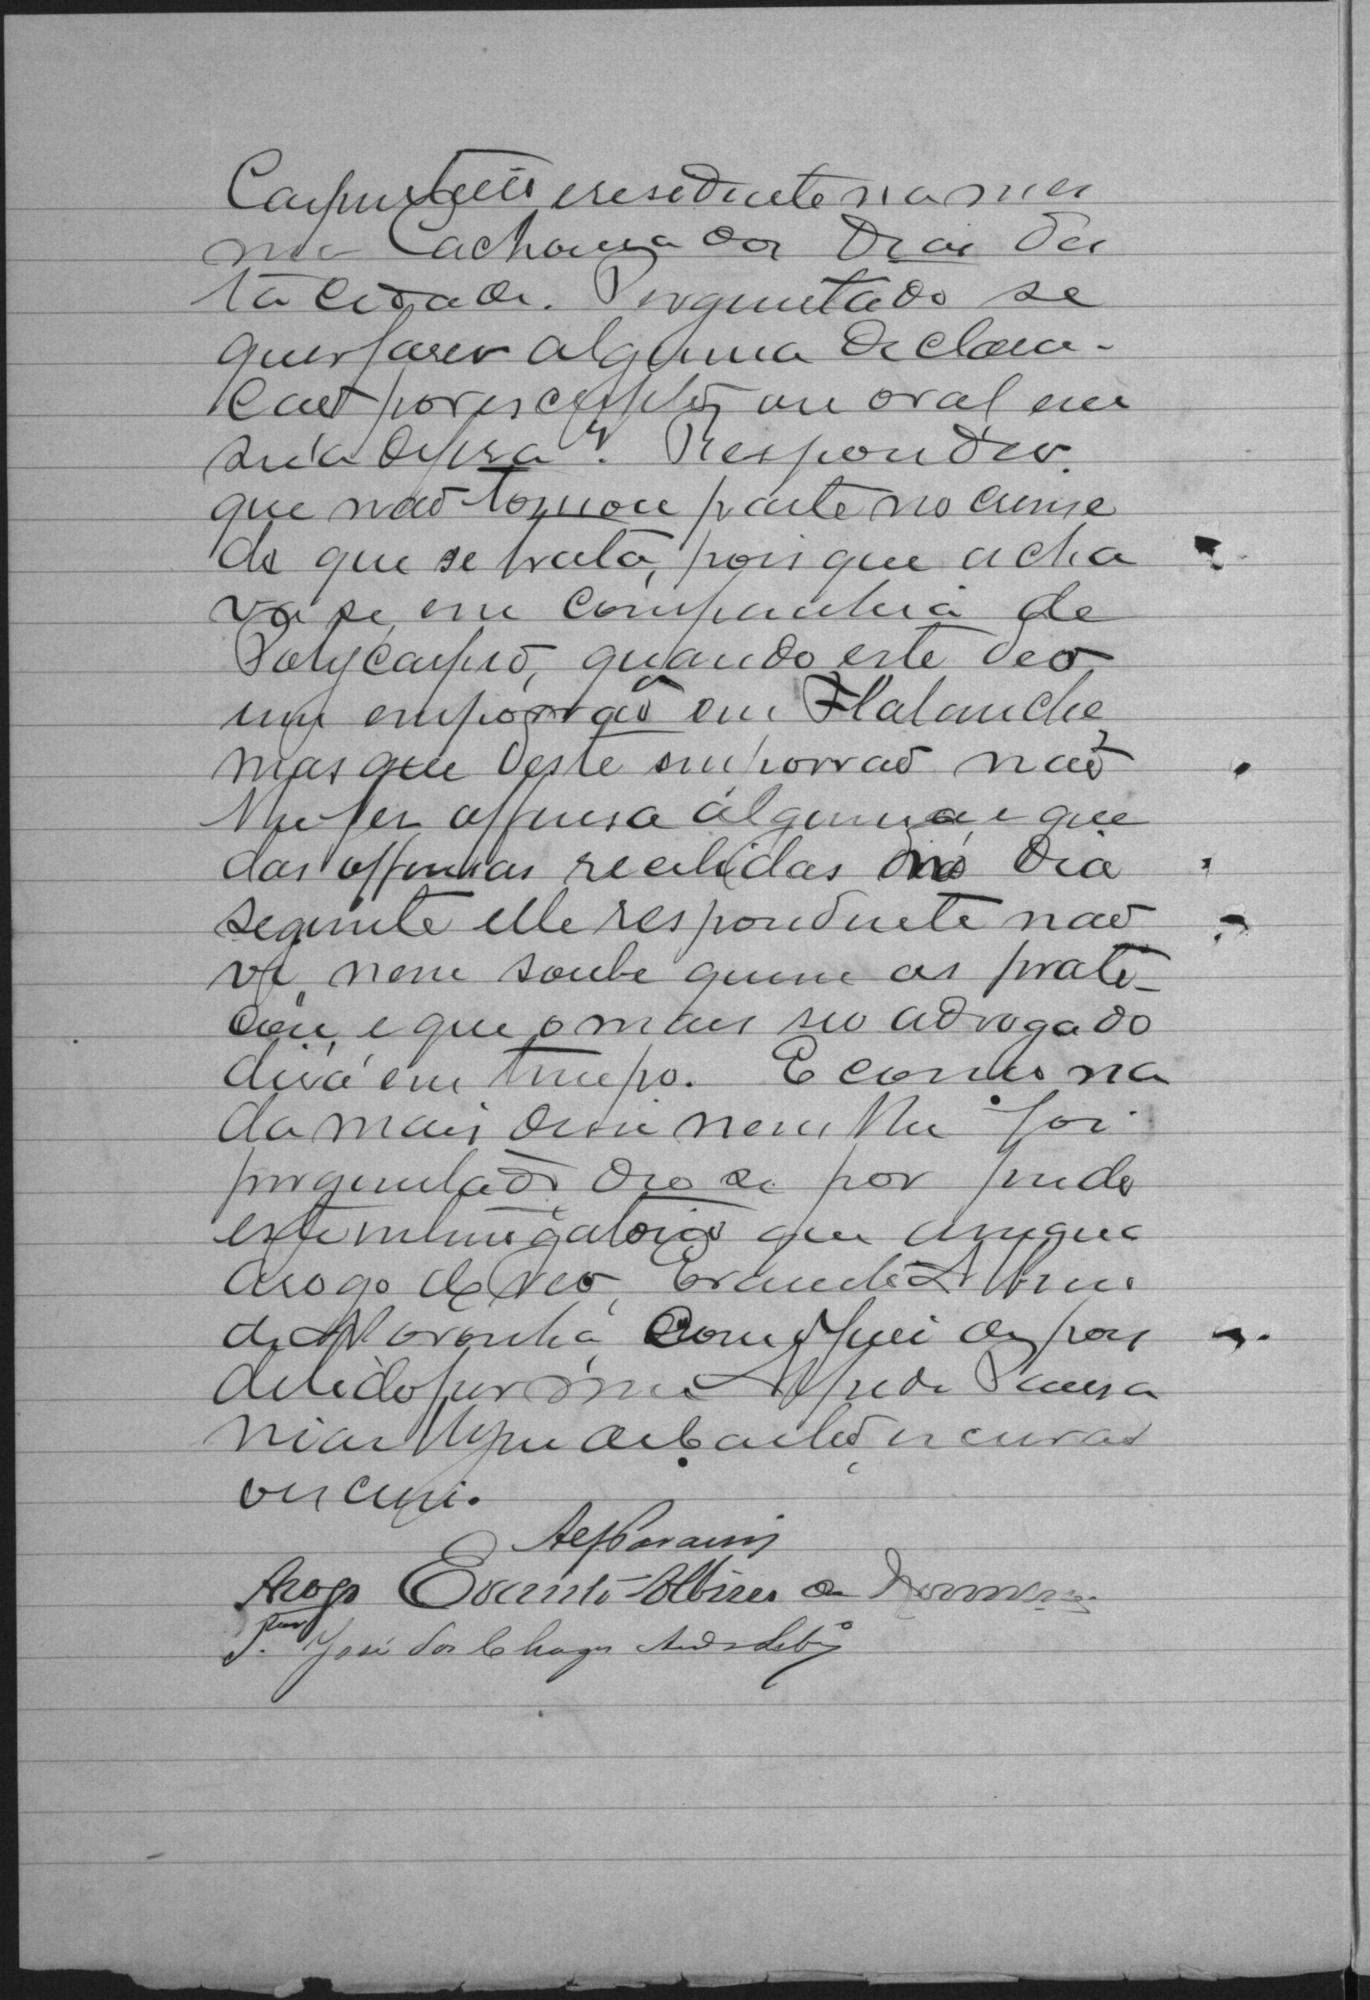 Carpinteiro e residente na mes
ma Cachoeira dos Dias des
ta Cidade. Perguntado se
quer faser alguma declara-
cão por escripto, ou oral em
sua defesa? Respondeo
que não tomou parte no crime
de que se trata, pois que acha
va se em companhia de
Polycarpio, quando este deo
um emporrão em
mas que deste emporrão não
lhe fez offensa alguma, e que
das offensas recebidas no dia
seguinte elle respondente não
vi, nem soube quem as prati-
cou, e que o mais seo advogado
dirá em tempo. E como na
da mais disse nem lhe foi
perguntado deo se por findo
este interrogatorio que assigna
arogo do reo, Evaristo Alvim
de Noronha com o Juiz depois
de lido por mim Alfredo Pausa
nias escrivão
escrevi.
Arogo Evaristo de
José das Chagas Andrade